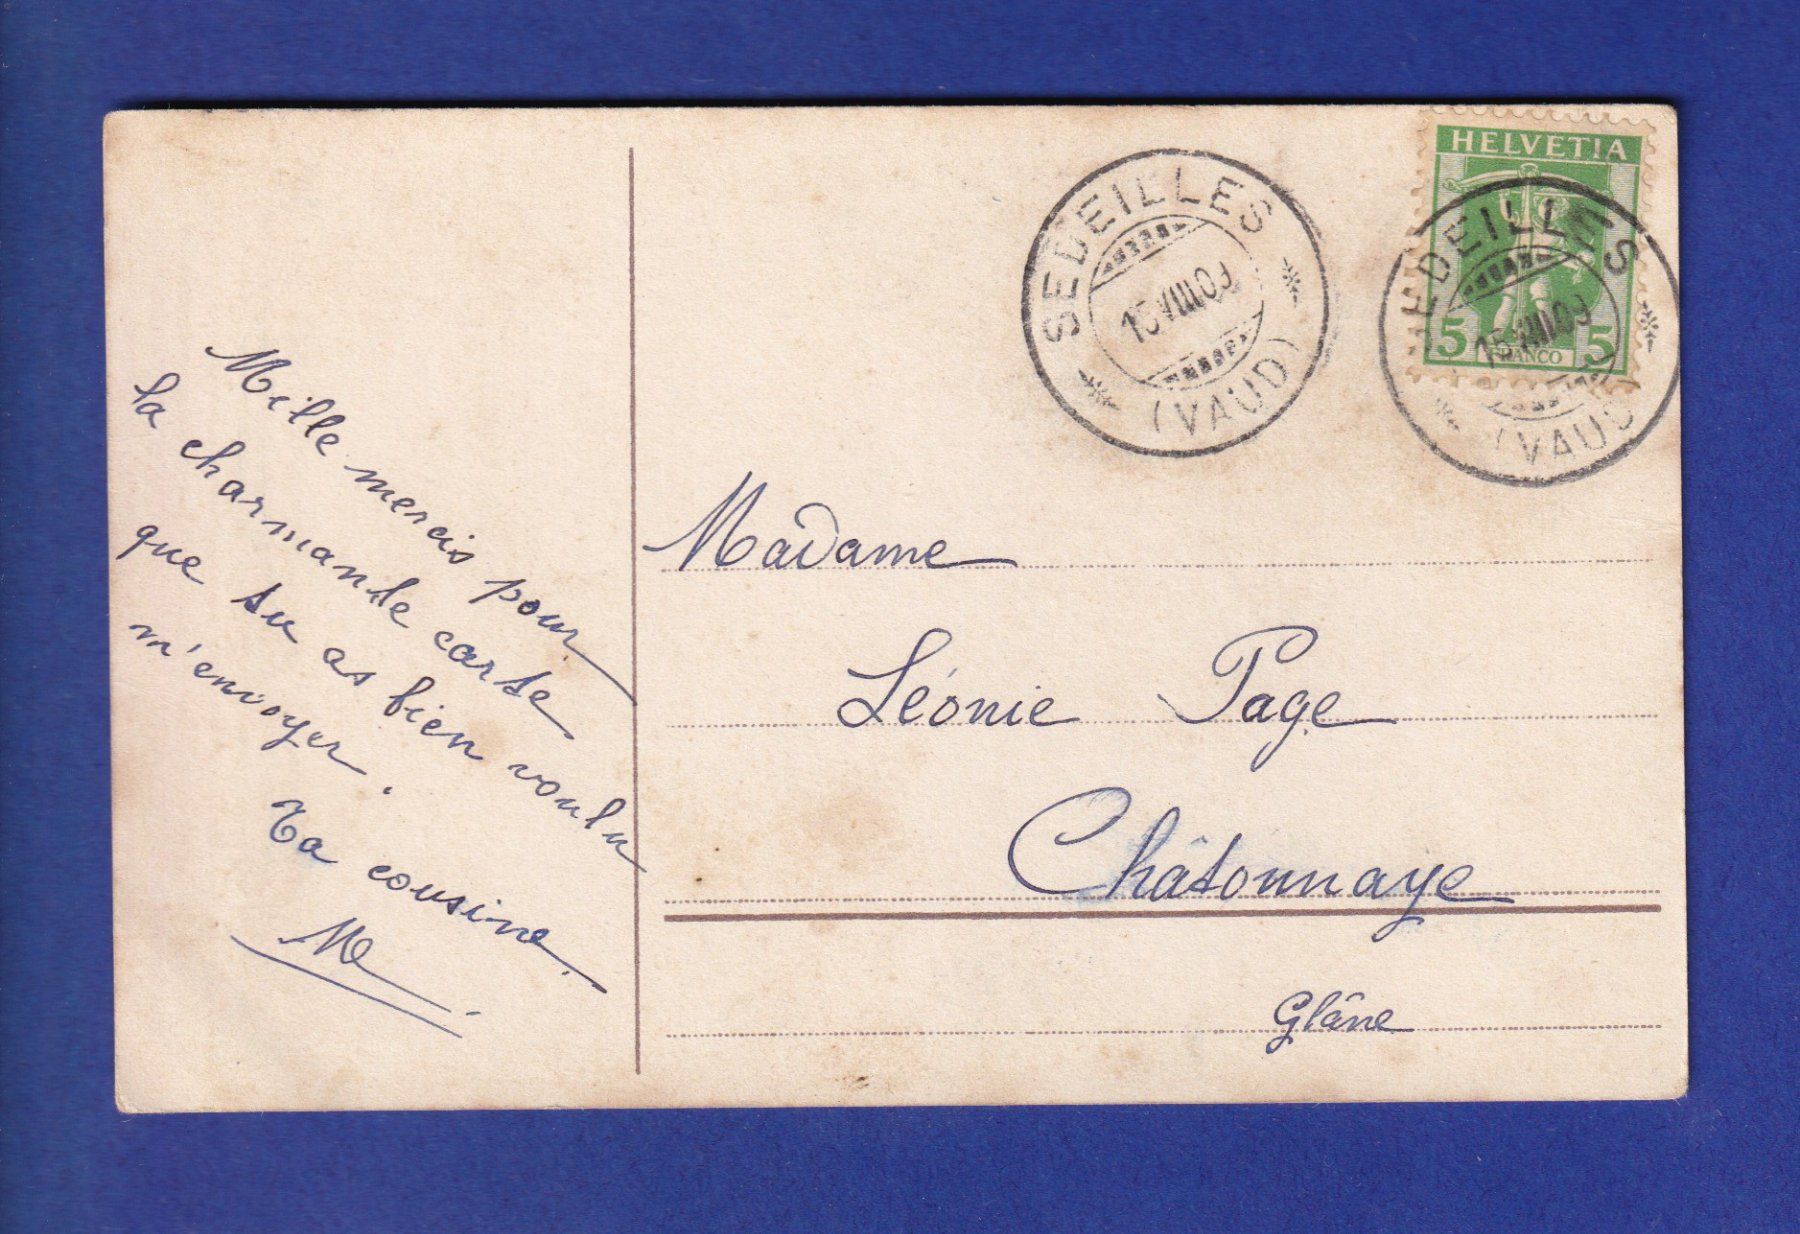 Mille mercis pour
la charmante carte
que tu as bien voulu
m'envoyer.
Ta cousine.
M
SEDEILLES
15.VIII.09
(VAUD)
HELVETIA
5 FRANCO 5
SEDEILLES
15.VIII.09
(VAUD)
Madame
Léonie Page
Châtonnaye
Glâne